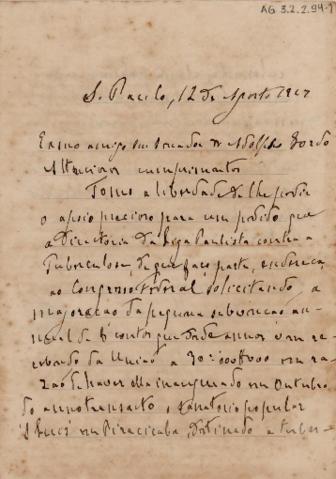 AG 3.2.2.94-1
S. Paulo, 12 de Agosto 1927
Exmo amigo Snr Senador Dr Adolpho Gordo
Attenciosos cumprimentos
Tomo a liberdade de lhe pedir
o apoio precioso para um pedido que
a Directoria da Liga Paulista contra a
Tuberculose, de que faço parte, endereça
ao Congresso Federal solicitando a
majoração da pequena subvenção an-
nual de 6 contos que desde annos vem re-
cebendo da União a 30:000$000 em ra-
zão de haver ella inaugurado em Outubro
do anno transacto, o Sanatorio popular
em Piracicaba, destinado a tuber-